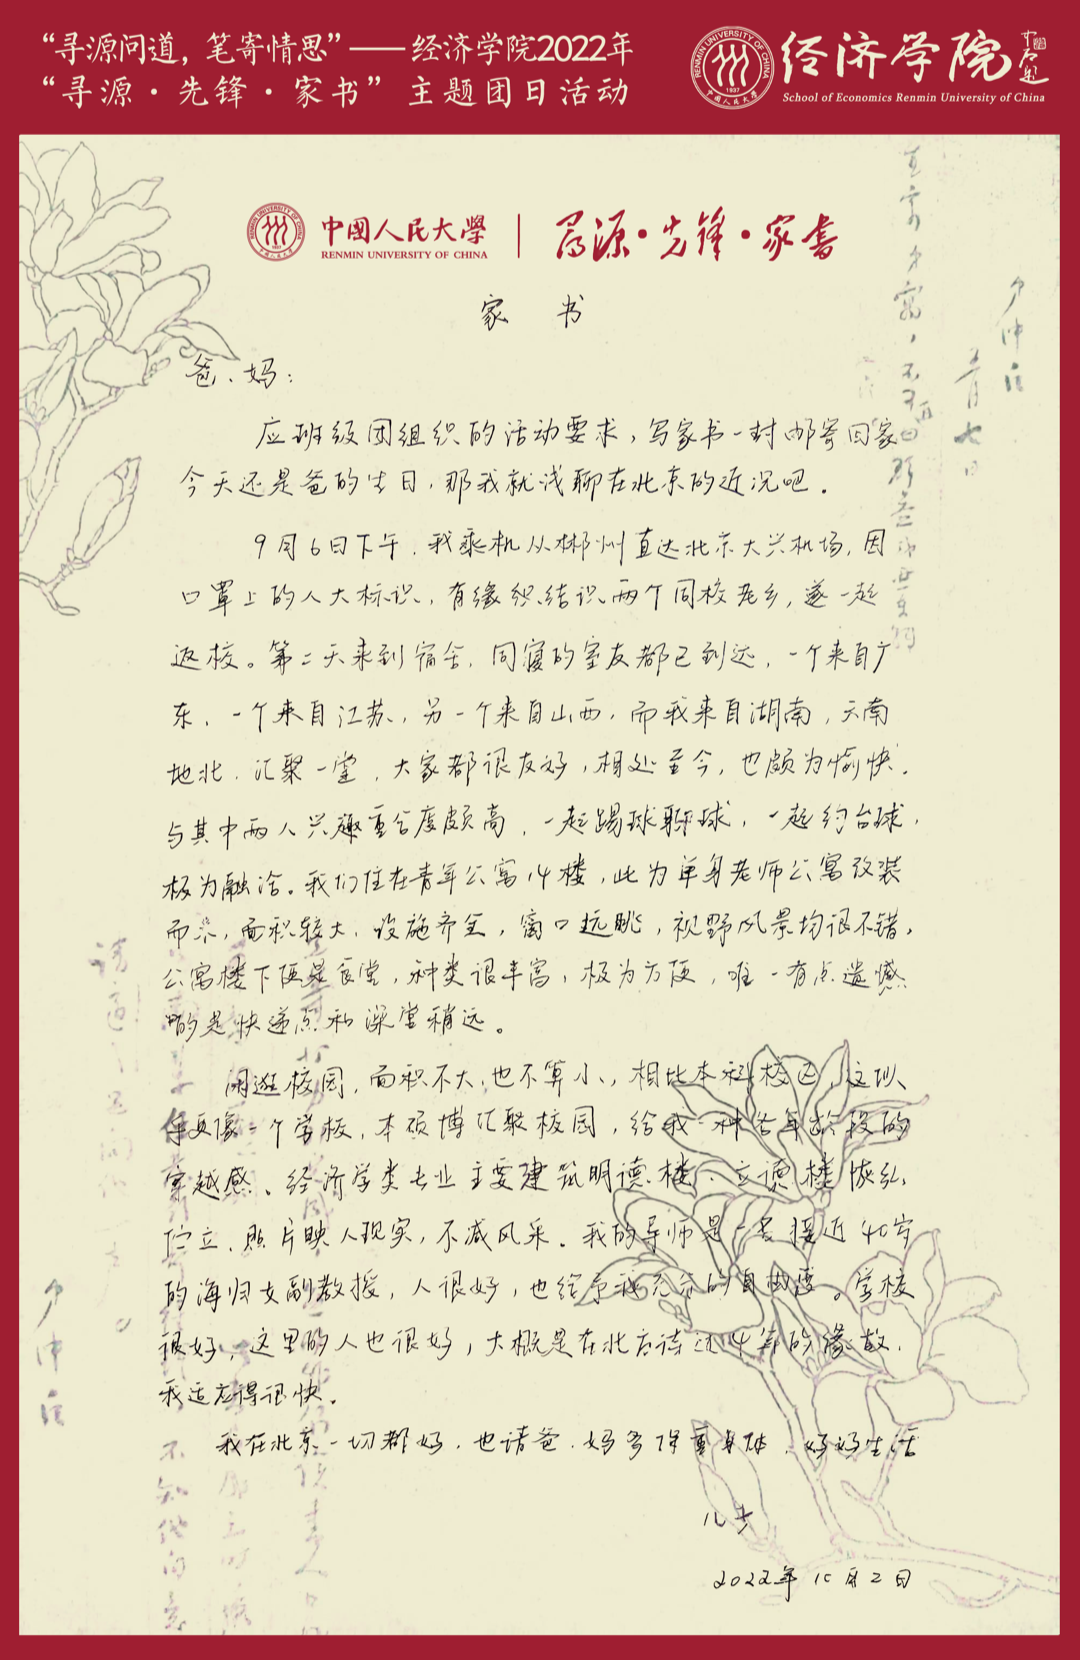 “寻源问道，笔寄情思”——经济学院2022年
“寻源·先锋·家书”主题团日活动
RENMIN UNIVERSITY OF CHINA
1937
中国人民大学
经济学院
School of Economics Renmin University of China
中國人民大學
RENMIN UNIVERSITY OF CHINA
寻源·先锋·家书
家 书
爸、妈：
应班级团组织的活动要求，写家书一封邮寄回家
今天还是爸的生日，那我就浅聊在北京的近况吧．
9月6日下午．我乘机从郴州直达北京大兴机场，因
口罩上的人大标识，有缘织结识两个同校老乡，遂一起
返校。第二天来到宿舍，同寝的室友都已到达，一个来自广
东，一个来自江苏，另一个来自山西，而我来自湖南，天南
地北．汇聚一堂，大家都很友好，相处至今，也颇为愉快．
与其中两人兴趣重合度颇高，一起踢球聊球，一起约台球，
极为融洽。我们住在青年公寓14楼，此为单身老师公寓改装
而来，面积较大．设施齐全，窗口远眺，视野风景均很不错，
公寓楼下便是食堂，种类很丰富，极为方便，唯一有点遗憾
的是快递点和澡堂稍远。
闲逛校园，面积不大，也不算小，相比本科校区，这似
乎更像一个学校，本硕博汇聚校园，给我一种各年龄段的
穿越感、经济学类专业主要建筑明德楼、立德楼恢弘
伫立，照片映人现实，不减风采．我的导师是一名接近40岁
的海归女副教授，人很好，也给予我充分的自由度。学校
很好，这里的人也很好，大概是在北京待过4年的缘故，
我适应得很快．
我在北京一切都好，也请爸．妈多保重身体，好好生活
2022年10月2日